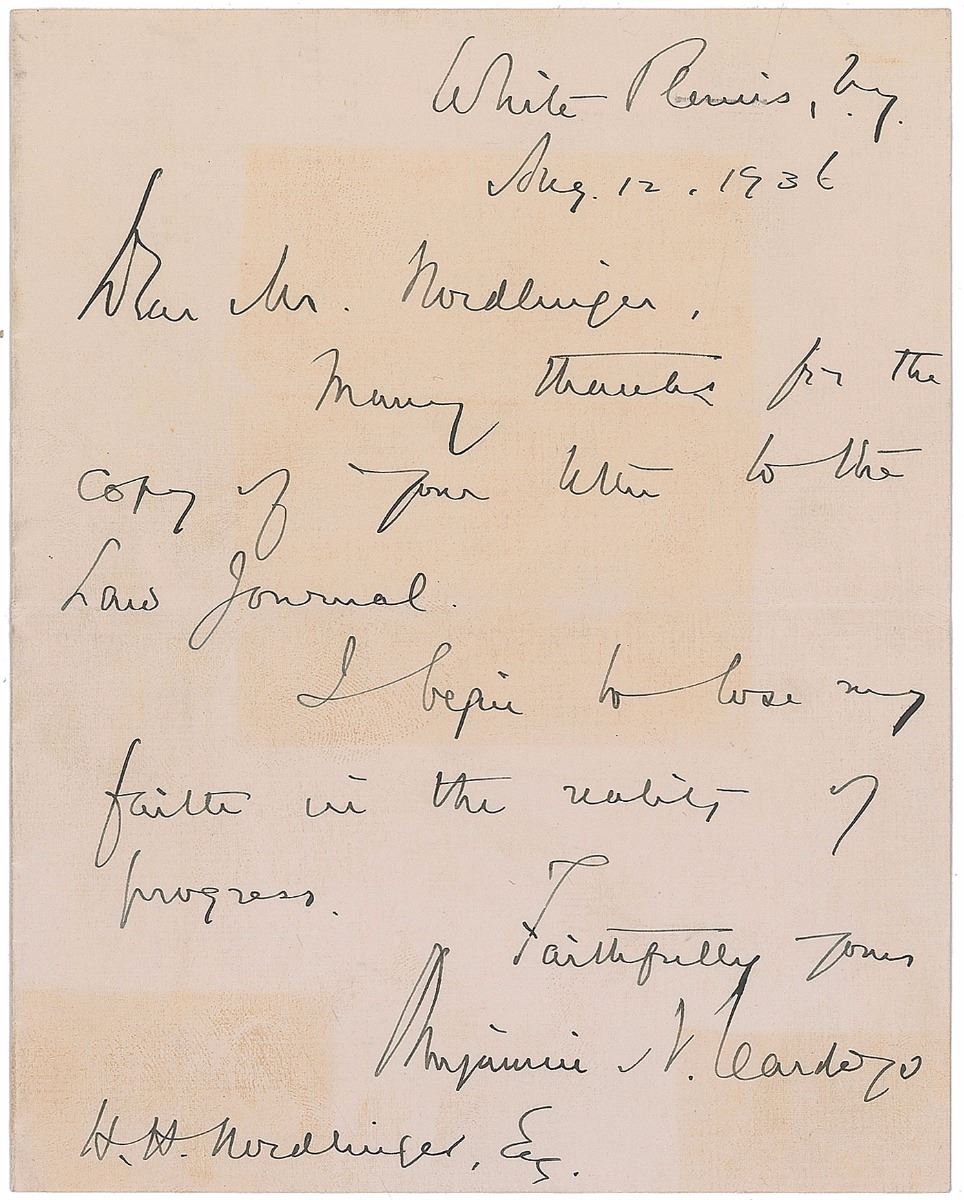 White Plains, N.Y.
Aug. 12, 1936
Dear Mr. Nordlinger,
Many thanks for the
copy of your letter to the
Law Journal.
I begin to lose my
faith in the reality of
progress.
Faithfully yours
Benjamin N. Cardozo
H. H. Nordlinger, Esq.